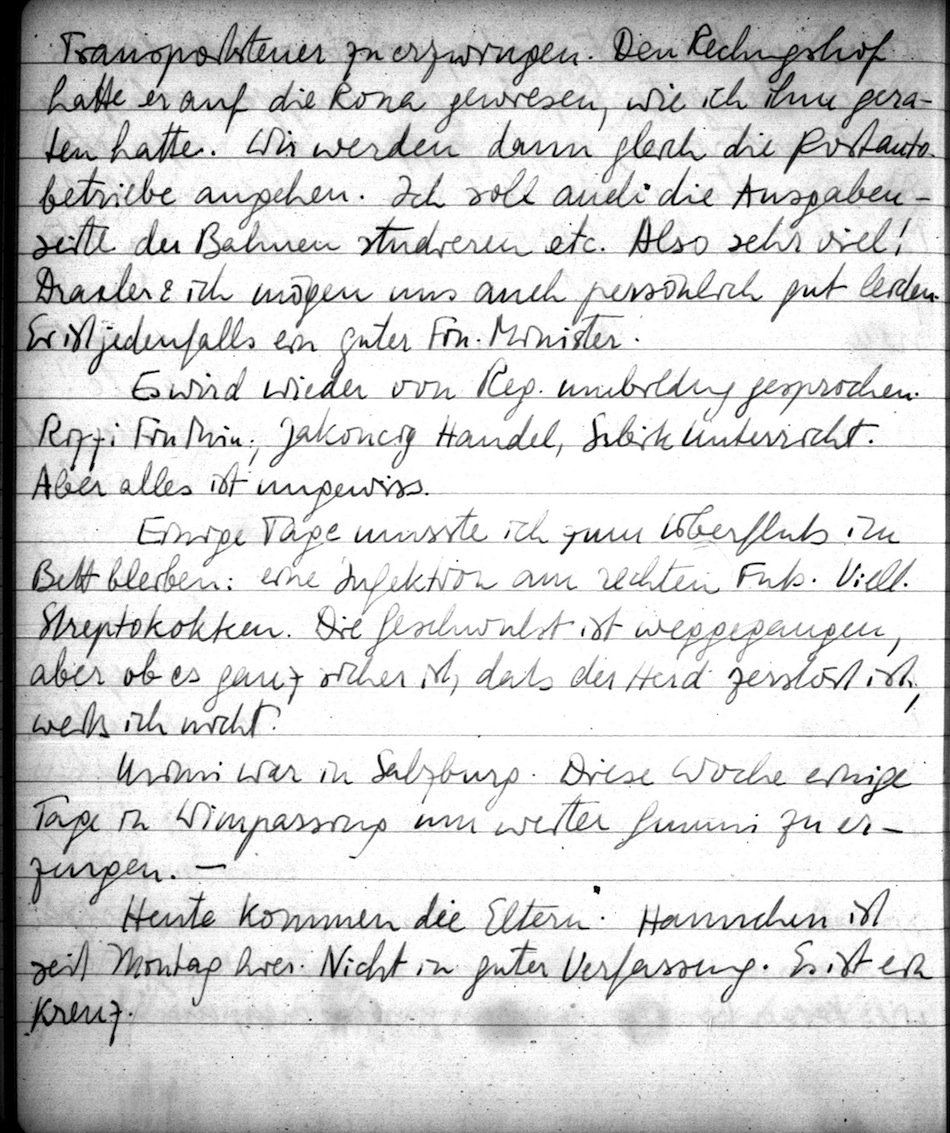 Transportsteuer zu erzwingen. Den Rechngshof
hatte er auf die Rona gewiesen, wie ich ihm gera-
ten hatte. Wir werden dann gleich die Postauto-
betriebe angehen. Ich soll auch die Ausgaben-
seite der Bahnen studieren etc. Also sehr viel!
Draxler & ich mögen uns auch persönlich gut leiden.
Er ist jedenfalls ein guter Fin. Minister.
Es wird wieder von Reg. umbildng gesprochen.
Rizzi Fin Min., Jakoncig Handel, Srbik Unterricht.
Aber alles ist ungewiss.
Einige Tage musste ich zum Überfluß im
Bett bleiben: eine Infektion am rechten Fuß. Viell.
Streptokokken. Die Geschwulst ist weggegangen,
aber ob es ganz sicher ist, daß der Herd zerstört ist,
weiß ich nicht.
war in Salzburg. Diese Woche einige
Tage in Wimpassing um weiter Gummi zu er-
zeugen. —
Heute kommen die Eltern. Hannchen ist
seit Montag hier. Nicht in guter Verfassung. Es ist ein
Kreuz.